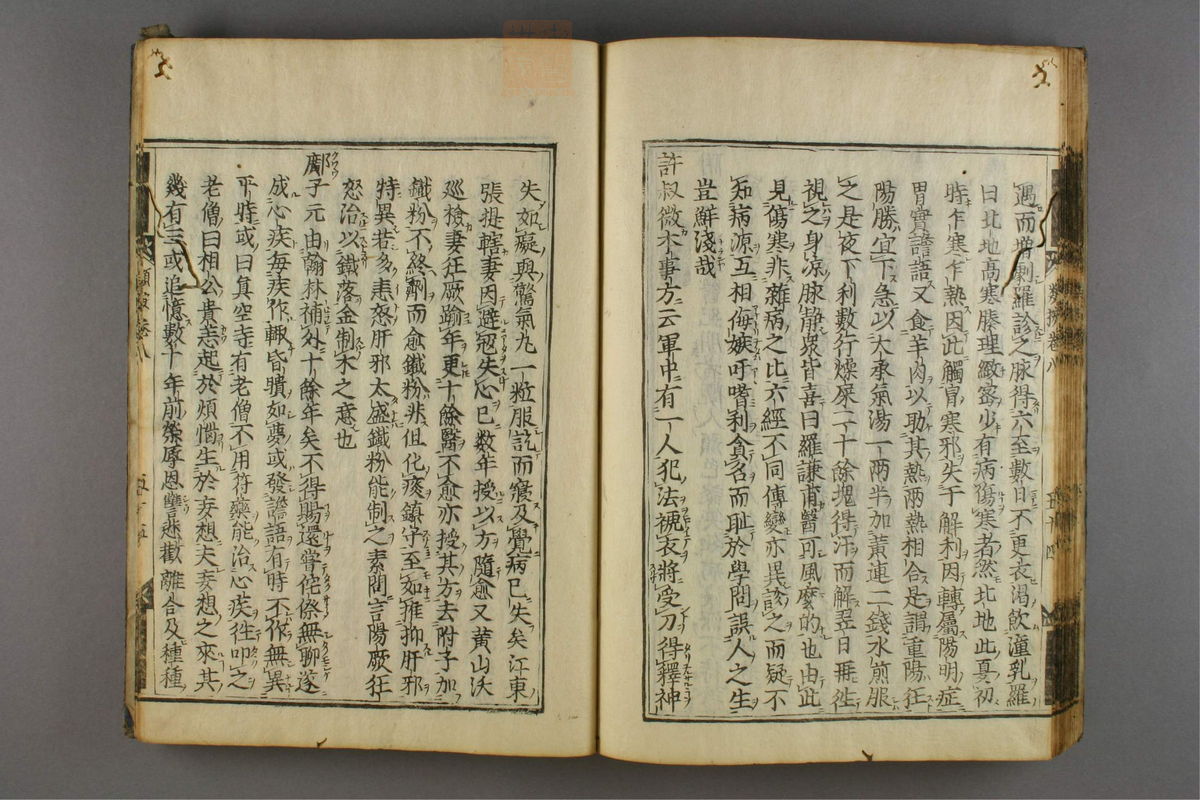 遇而增劇羅診之脉得六至數日不更衣渴飲潼乳羅
曰北地高寒腠理緻密少有病傷寒者然北地此夏初
時乍寒乍熱因此觸冒寒邪失于解利因轉屬陽明症
胃實譫語又食羊肉以助其熱兩熱相合是謂重陽狂
陽勝宜下急以大承氣湯一兩半加黃連二錢水煎服
之是夜下利數行燥屎二十餘塊得汗而解翌日再徃
視之身凉脉静衆皆喜曰羅謙甫醫可風麼的也由此
見傷寒非雜病之比六經不同傳變亦異診之而疑不
知病源互相侮嫉吁嗜利貪名而耻於學問誤人之生
豈鮮淺哉
許叔微本事方云軍中有一人犯法褫衣將受刀得釋神
失如癡與驚氣九一粒服訖而寢及覺病已失矣江東
張提轄妻因避寇失心已数年授以方隨愈又黃山沃
巡檢妻狂厥踰年更十餘醫不愈亦授其方去附子加
鐵粉不終劑而愈鐵粉非但化痰鎮守至如摧抑肝邪
特異若多恚怒肝邪太盛鐵粉能制之素問言陽厥狂
怒治以鐵落金制木之意也
鄺子元由翰林補外十餘年矣不得賜還嘗侘傺無聊遂
成心疾每疾作輙昏聵如夢或發譫語有時不作無異
平時或曰真空寺有老僧不用符藥能治心疾徃叩之
老僧曰相公貴恙起於煩惱生於妄想夫妄想之來其
幾有三或追憶數十年前榮辱恩讐悲歡離合及種種